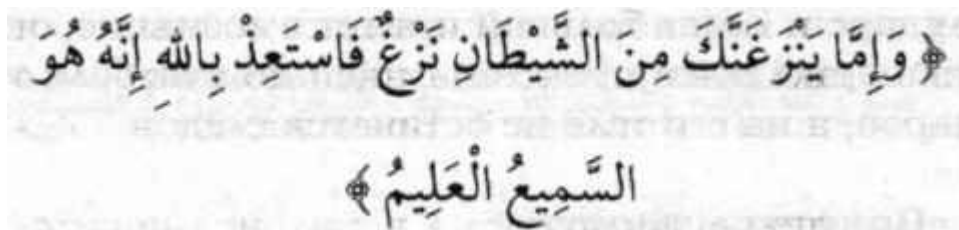 ﴿ وَإِمَّا يَنزَغَنَّكَ مِنَ الشَّيْطَانِ نَزْغٌ فَاسْتَعِذْ بِاللهِ إِنَّهُ هُوَ
السَّمِيعُ الْعَلِيمُ ﴾